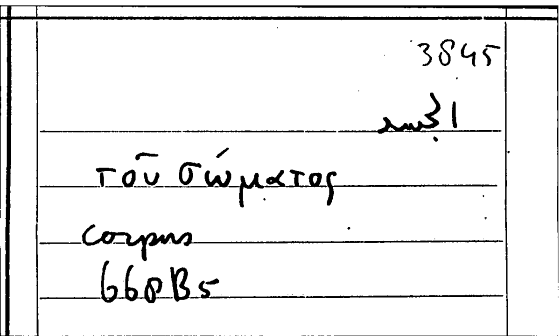 3845
τοῦ σώματος
corpus
668B5